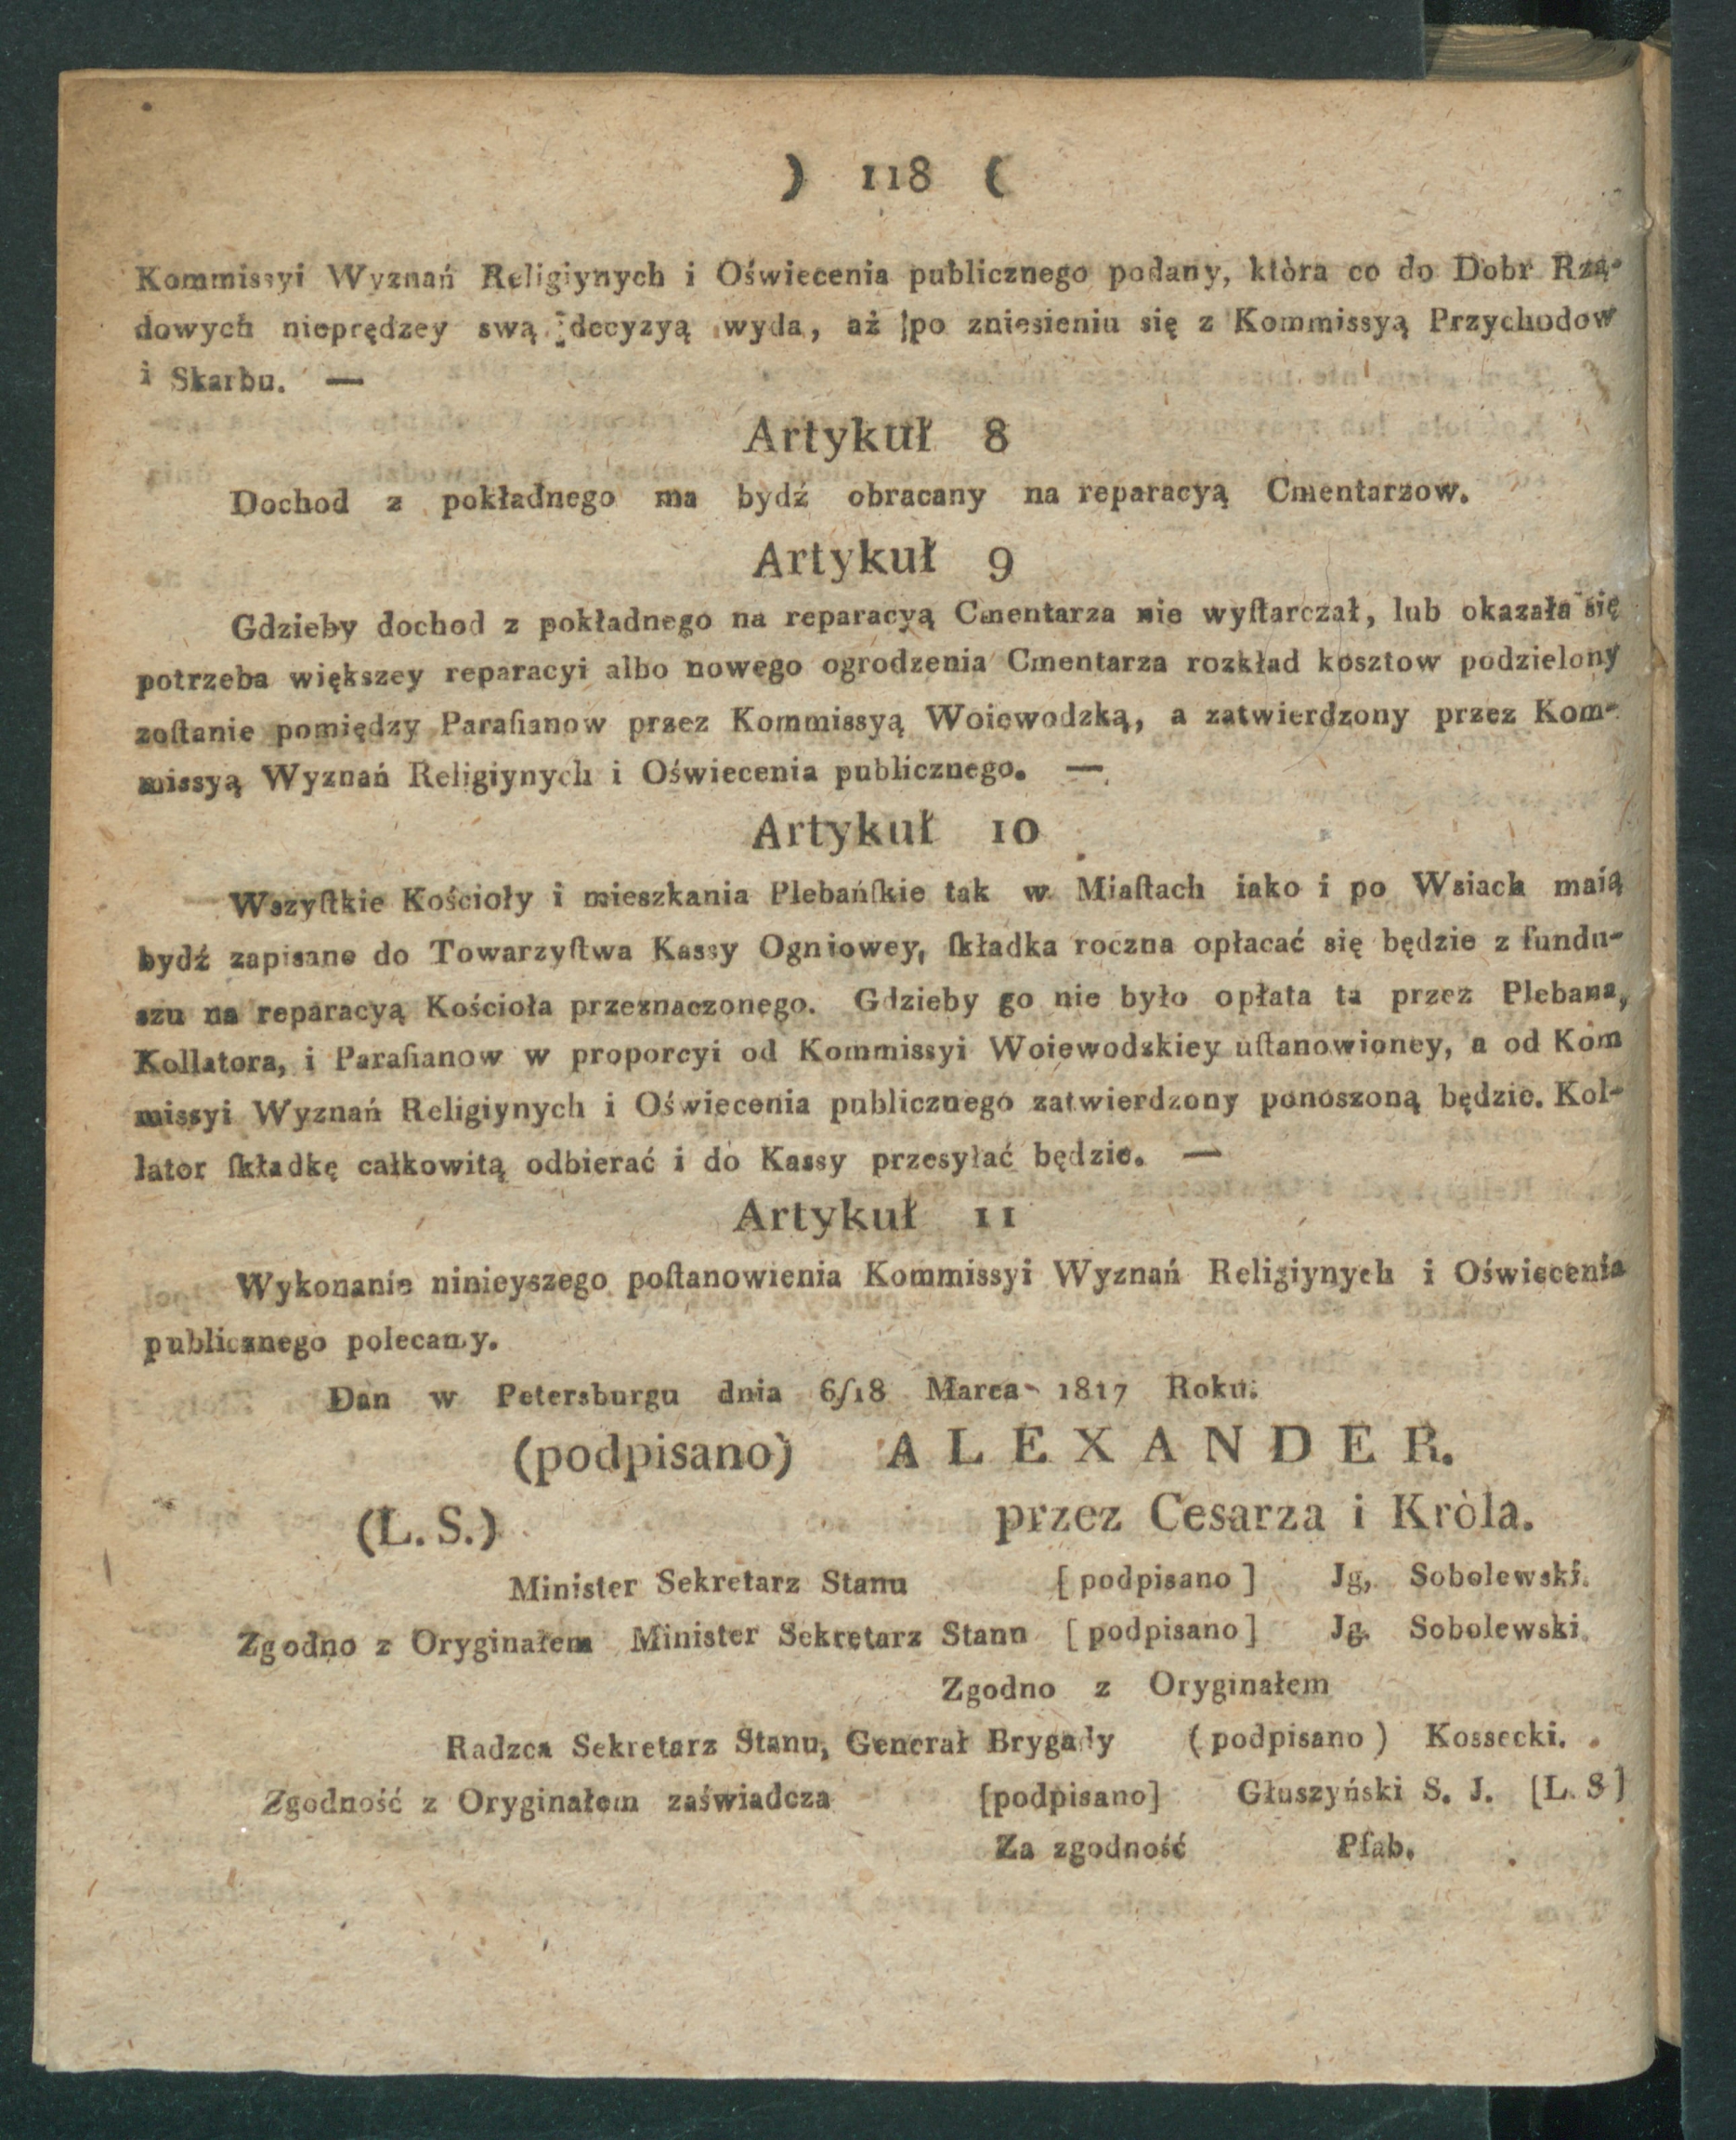 ) 118 (
Kommissyi Wyznań Religiynych i Oświecenia publicznego podany, ktòra co do Dobr Rzą-
dowych nieprędzey swą decyzyą wyda, aż po zniesieniu się z Kommissyą Przychodow
i Skarbu. —
Artykuł 8
Dochod z pokładnego ma bydź obracany na reparacyą Cmentarzow.
Artykuł 9
Gdzieby dochod z pokładnego na reparacyą Cmentarza nie wyſtarczał, lub okazała się
potrzeba większey reparacyi albo nowego ogrodzenia Cmentarza rozkład kosztow podzielony
zoſtanie pomiędzy Paraſianow przez Kommissyą Woiewodzką, a zatwierdzony przez Kom-
missyą Wyznań Religiynych i Oświecenia publicznego. —
Artykuł 10
Wszyſtkie Kościoły i mieszkania Plebańſkie tak w Miaſtach iako i po Wsiach maią
bydź zapisane do Towarzyſtwa Kassy Ogniowey, ſkładka roczna opłacać się będzie z fundu-
szu na reparacyą Kościoła przeznaczonego. Gdzieby go nie było opłata ta przez Plebana,
Kollatora, i Paraſianow w proporcyi od Kommissyi Woiewodzkiey uſtanowioney, a od Kom
missyi Wyznań Religiynych i Oświecenia publicznego zatwierdzony ponoszoną będzie. Kol-
lator ſkładkę całkowitą odbierać i do Kassy przesyłać będzie. —
Artykuł 11
Wykonanie ninieyszego poſtanowienia Kommissyi Wyznań Religiynych i Oświecenia
publicznego polecamy.
Dan w Petersburgu dnia 6/18 Marca 1817 Roku.
(podpisano) ALEXANDER.
(L. S.) przez Cesarza i Kròla.
Minister Sekretarz Stanu [podpisano] Jg, Sobolewski.
Zgodno z Oryginałem Minister Sekretarz Stanu [podpisano] Jg. Sobolewski.
Zgodno z Oryginałem
Radzca Sekretarz Stanu, Generał Brygady (podpisano) Kossecki.
Zgodność z Oryginałem zaświadcza [podpisano] Głuszyński S. J. [L. S]
Za zgodność Pſab.